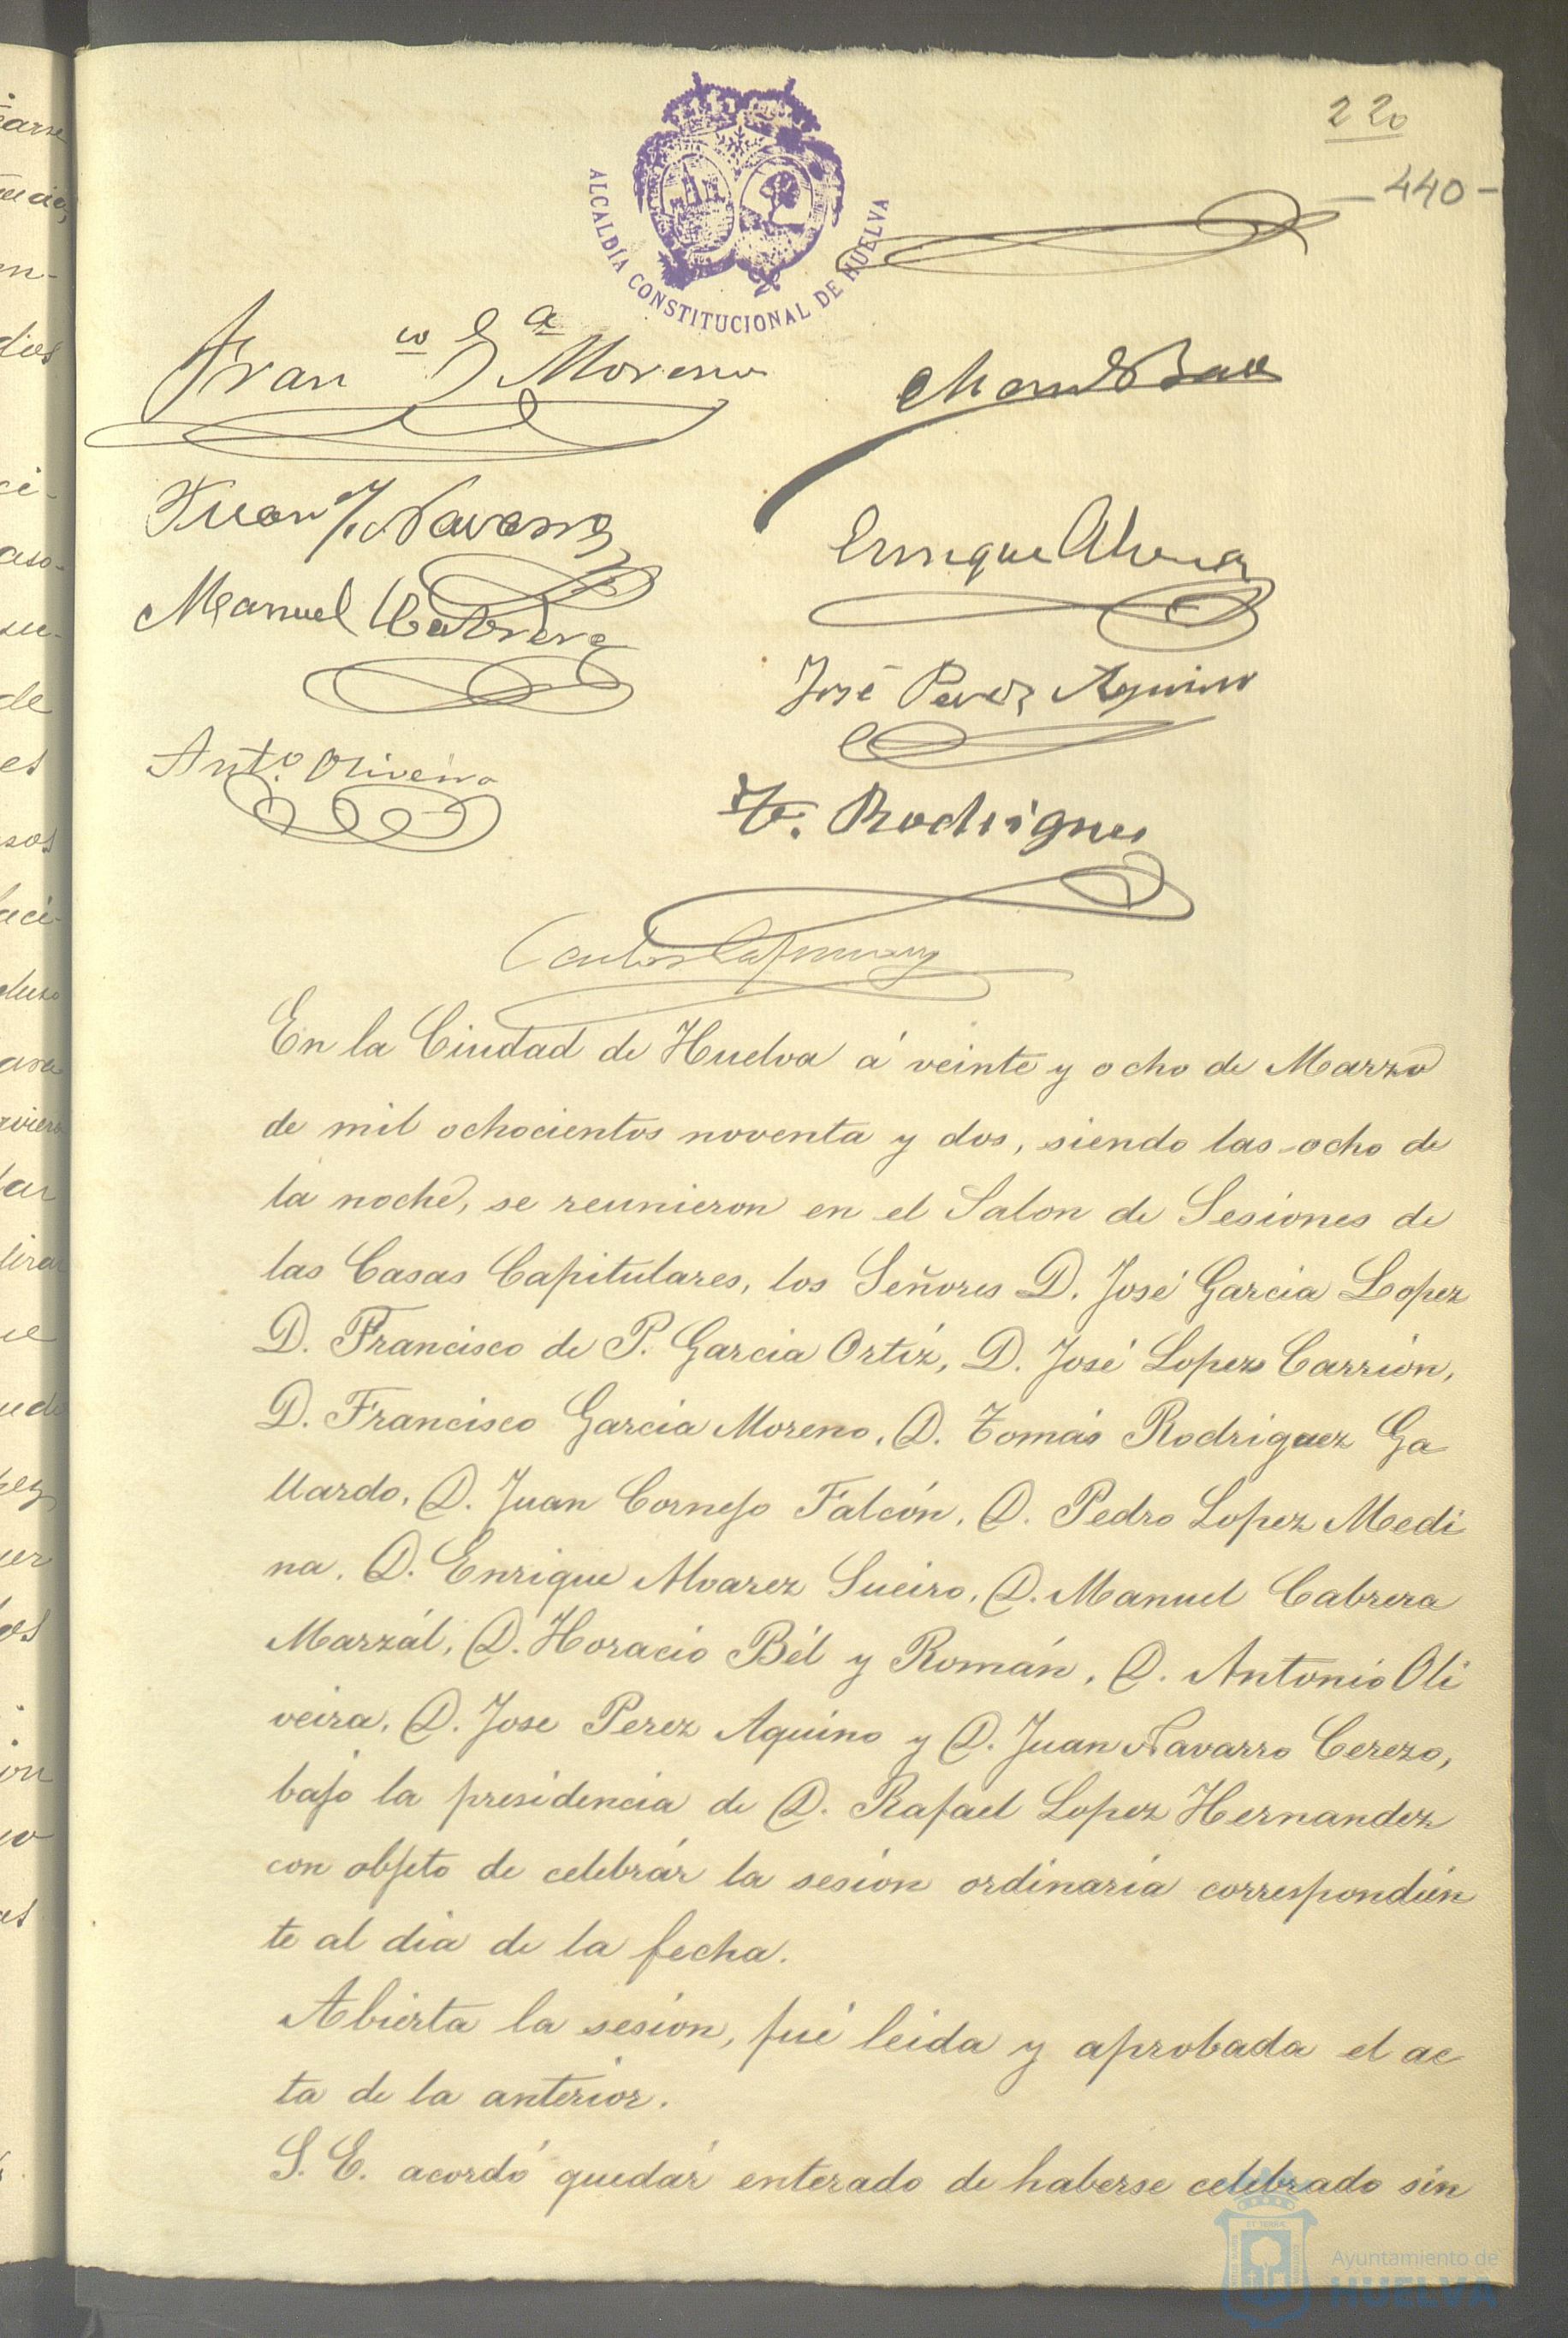 2 20
- 440 -
ALCALDÍA CONSTITUCIONAL DE HUELVA
Fran co Ga Moreno
Juan Navarro
Enrique Alvarez
Manuel Cabrera
José Perez Aquino
Anto. Oliveira
T. Rodrigues
En la Ciudad de Huelva á veinte y ocho de Marzo
de mil ochocientos noventa y dos, siendo las ocho de
la noche, se reunieron en el Salon de Sesiones de
las Casas Capitulares, los Señores D. José Garcia Lopez
D. Francisco de P. Garcia Ortiz, D. José Lopez Carrión,
D. Francisco Garcia Moreno, D. Tomás Rodriguez Ga
llardo, D. Juan Cornejo Falcón, D. Pedro Lopez Medi
na, D. Enrique Alvarez Sueiro, D. Manuel Cabrera
Marzál, D. Horacio Bél y Román, D. Antonio Oli
veira, D. Jose Perez Aquino y D. Juan Navarro Cerezo,
bajo la presidencia de D. Rafael Lopez Hernandez
con objeto de celebrár la sesión ordinaria correspondien
te al dia de la fecha.
Abierta la sesión, fué leida y aprobada el ac
ta de la anterior.
S. E. acordó quedár enterado de haberse celebrado sin
Ayuntamiento de
HUELVA